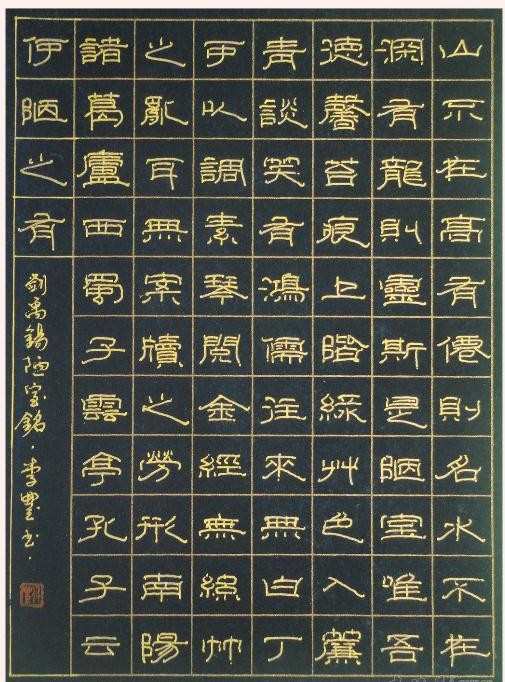 山不在高有僊則名水不在
深有龍則靈斯是陋室唯吾
德馨苔痕上階綠艸色入簾
青談笑有鴻儒往來無白丁
可以調素琴閱金經無絲竹
之亂耳無案牘之勞形南陽
諸葛廬西蜀子雲亭孔子云
何陋之有
劉禹錫陋室銘·李豐书·